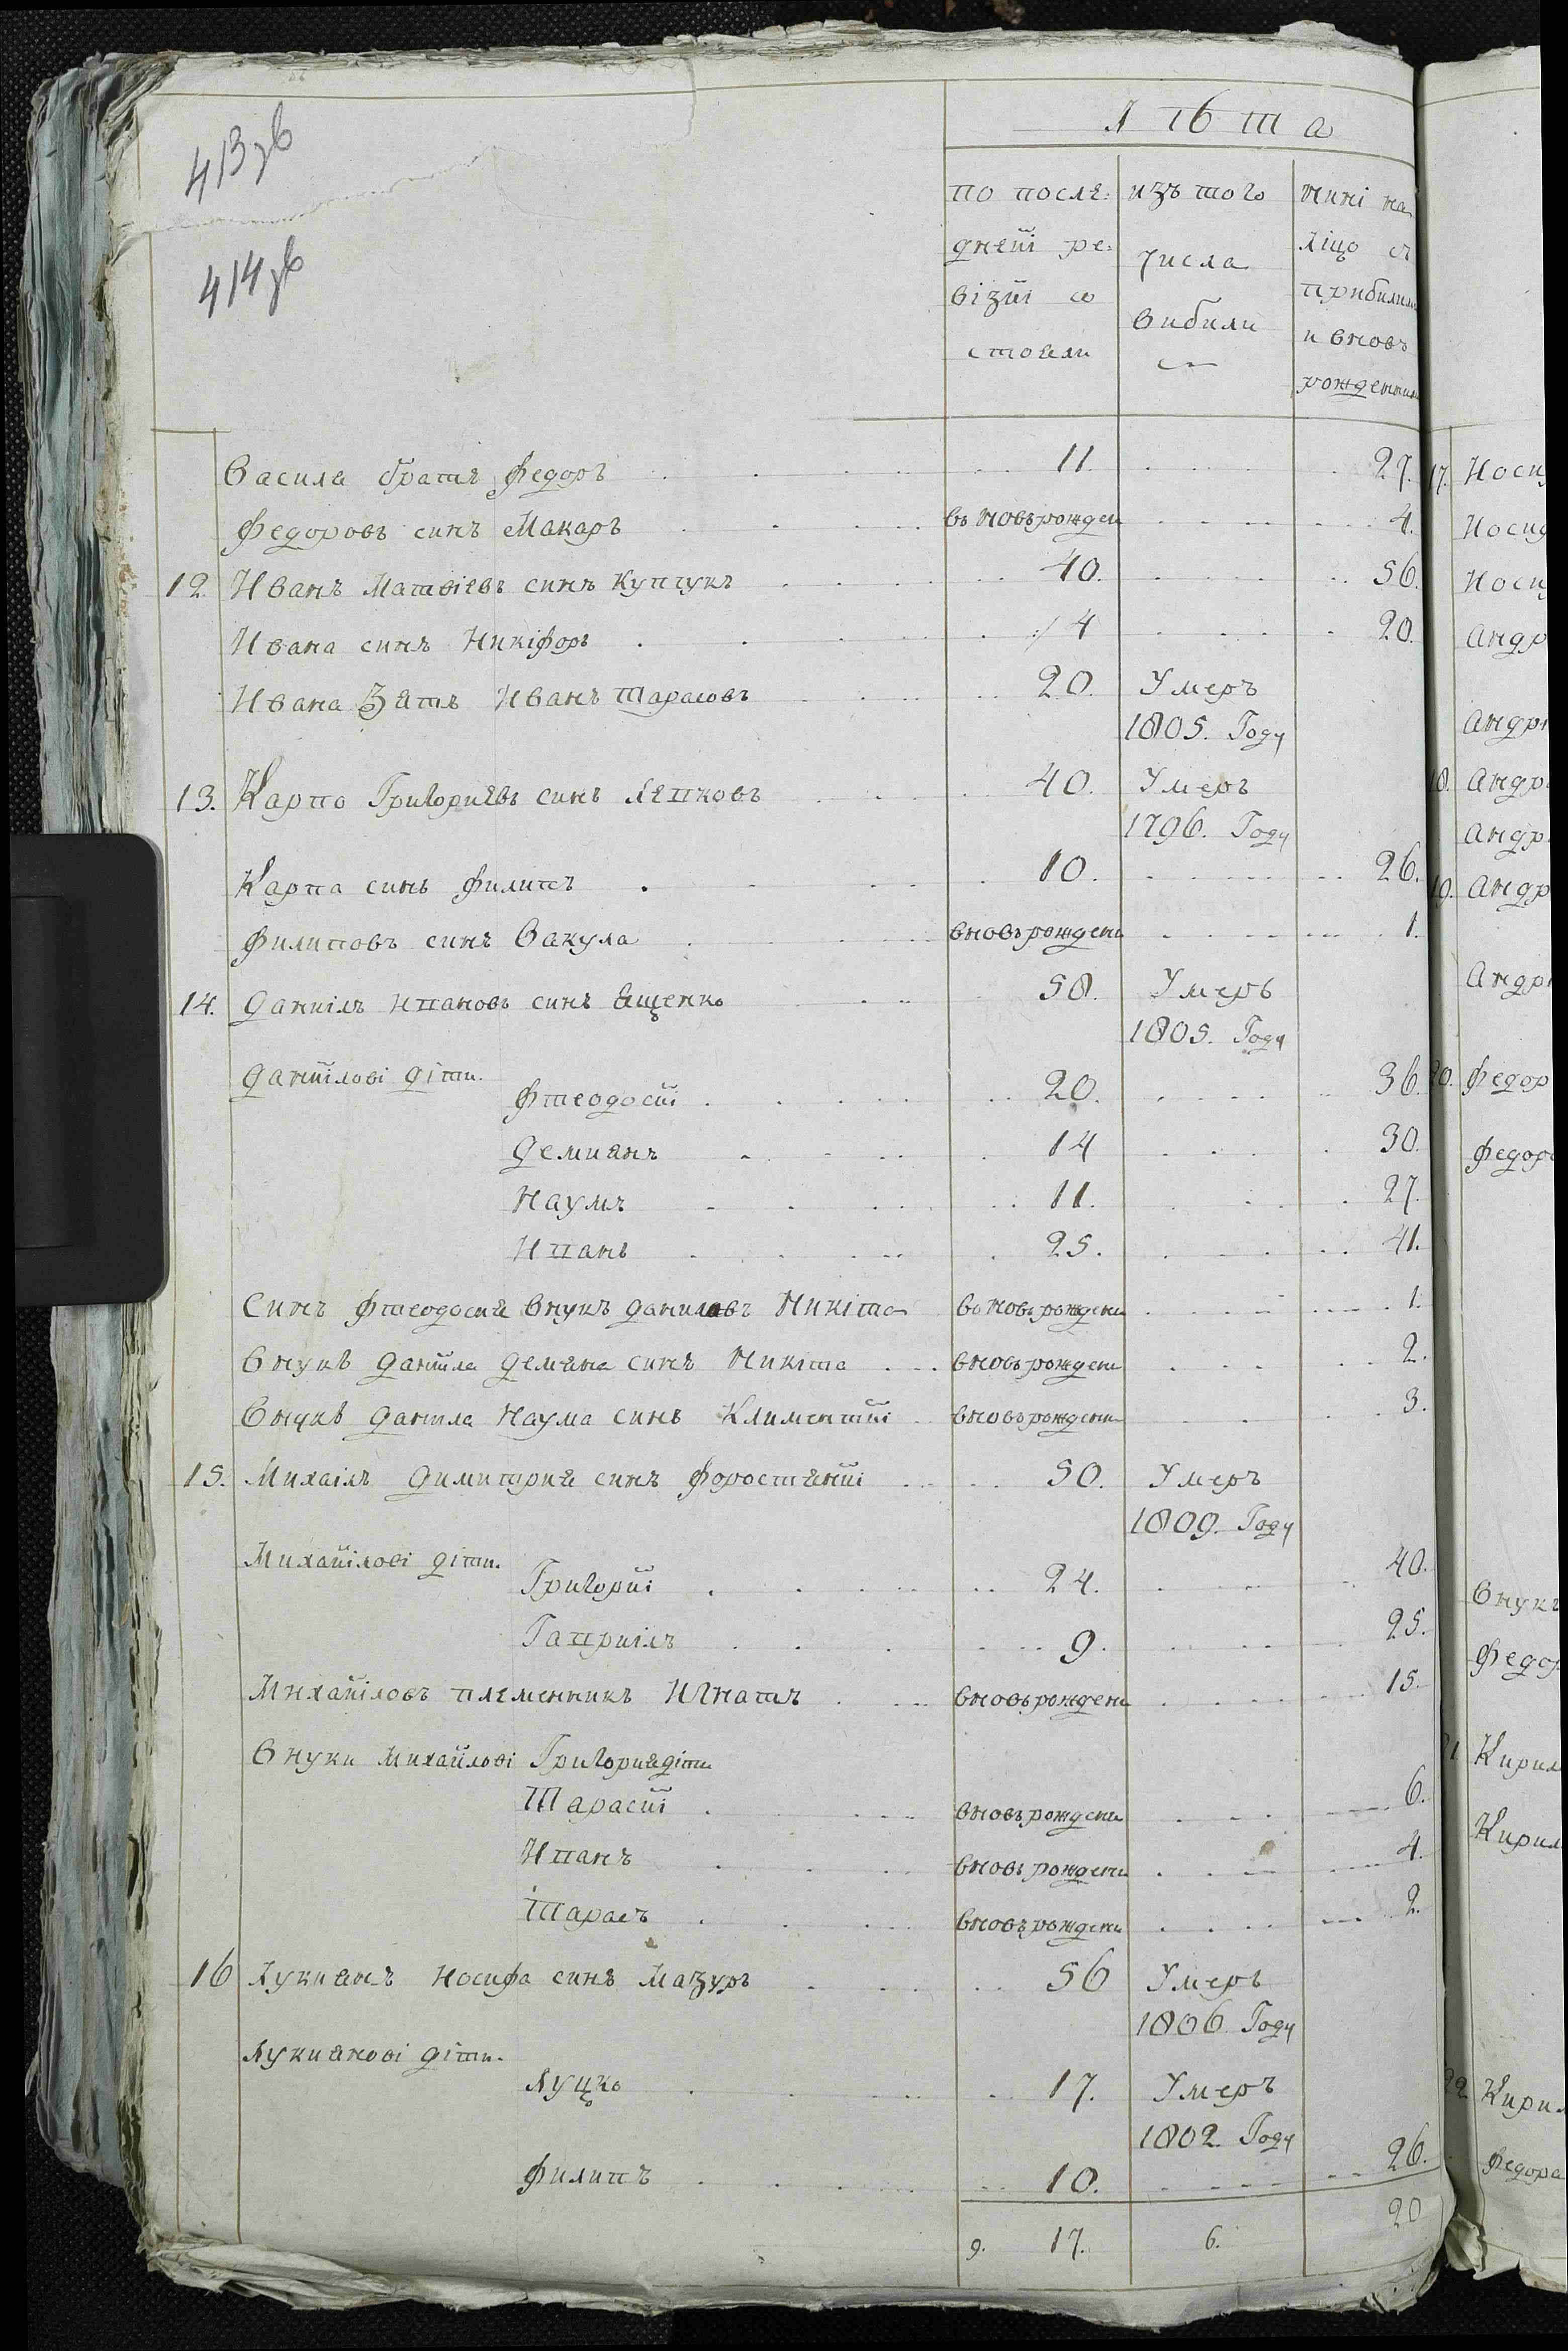 413зв
414зв
Лѣта
по после: изъ того нині на
днеиі ре: числа ліцо съ
візиі со вибили прибилими
стояли и вновъ
рожденними
Васила братъ Федоръ 11 27.
Федоровъ синъ Макаръ въновърожден 4.
12 Иванъ Матвіевъ синъ Купчукъ 40. 56.
Ивана синъ Никіфоръ 4 20.
Ивана Зять Иванъ Тарасовъ 20. Умеръ
1805. Году
13. Карпо Григориявъ синъ Ляпковъ 40. Умеръ
1796. Году
Карпа синъ Филипъ 10. 26.
Филиповъ синъ Вакула вновърожденъ 1.
14. Даниілъ Ипановъ синъ Ященко 58. Умеръ
1805. Году
Даниілові діти.
Фтеодосиі 20. 36.
Демиянъ 14 30.
Наумъ 11. 27.
Ипанъ 25. 41.
Синъ Фтеодосия внукъ Даниловъ Никіта воновърожденъ 1.
Внукъ Даниіла Демяна синъ Никита вновърожденъ 2.
Внукъ Даниіла Наума синъ Климентиі вновърожденъ 3.
15. Михаілъ Димитрия синъ Форостяниі 50. Умеръ
1809. Году
Михаиілові діти.
Григориі 24. 40.
Гаприілъ 9. 25.
Михаиіловъ племенникъ Игнатъ вновърожденъ 15.
Внуки Михаиілові Григория діти
Тарасиі вновърожденъ 6.
Ипанъ вновърожденъ 4.
Тарасъ вновърожденъ 2.
16 Лукиянъ Иосифа синъ Мазуръ 56 Умеръ
1806. Году
Лукиянові діти.
Луцко 17. Умеръ
1802. Году
Филипъ 10. 26.
9. 17. 6. 20
17. Иоси
Иоси
Иоси
Андр
Андр
18. Андр
Андр
19. Андр
Андр
20. Федор
Федор
Внукъ
Федо
21 Кирил
Кирил
22 Кири
Федора